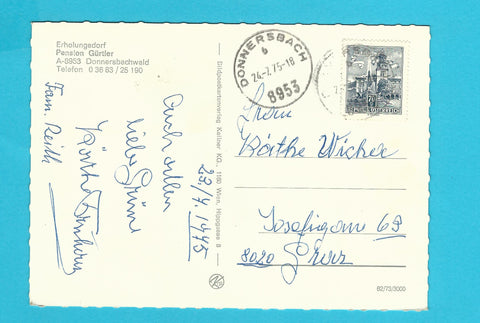 Erholungsdorf
Pension Gürtler
A-8953 Donnersbachwald
Telefon 0 36 83 / 25 190
DONNERSBACH
b
24.-7.75-18
8953
REPUBLIK ÖSTERREICH
Bildpostkartenverlag Kellner KG., 1150 Wien, Hagegasse 8
22/7. 1975
Auch allen
liebe Grüße
Käthe
Fam. Reith
Frau
Käthe Wicher
Josefigasse 69
8020 Graz
82/75/3000